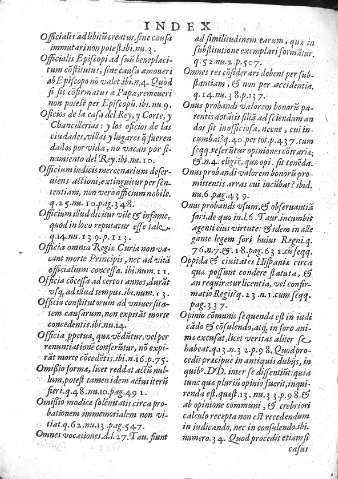 INDEX
Officialis ad libitũ creatus, sine causa
immutari non potest. ibi. nu. 3.
Officialis Episcopi ad suũ beneplaci-
tum cõstitutus, sine causa amoueri
ab Episcopo nõ valet. ibi. n. 4. Quod
si sit cõfirmatus à Papa, remoueri
non potest per Episcopũ. ibi. nu. 9.
Oficios de la casa del Rey, y Corte, y
Chancillerias: y los oficios de las
ciudades, villas y lugares, si fueren
dados por vida, no vacan por fi-
namiento del Rey. ibi. nu. 10.
Officium iudicis mercenarium deser-
uiens actioni, extinguitur per sen-
tentiam, non vero officium nobile.
q. 25. nu. 10. pag. 348.
Officium illud dicitur vile & infame,
quod in loco reputatur esse tale.
q. 14. nu. 139. p. 123.
Officia omnia Regia Curia non va-
cant morte Principis, nec ad vitã
officialium concessa. ibi. num. 11.
Officia cõcessa ad certos annos, durãt
vsq, ad illud tempus. ibi. num. 13.
Officia constitutorum ad vniuersita-
tem causarum, non expirãt morte
concedentis. ibi. nu. 14.
Officia ppetua, quæ vẽdũtur, vel per
renuntiatione conferũtur, nõ expi-
rãt morte cocedẽtis. ibi. n. 16. p. 75.
Omissio forma, licet reddat actũ nul-
lum, potest tamen idem actus iterũ
fieri. q. 48. nu. 10. pag. 491.
Omissio modicæ solenitatis circa pro-
bationem immemorialem non vi-
tiat. q. 62. nu. 13. pag. 547.
Omnes vocationes. d. l. 27. Tau. fiunt
ad similitudinem earum, quæ in
substitutione exemplari formãtur.
q. 52. nu. 2. p. 507.
Omnes res cõsiderari debent per sub-
stantiam, & non per accedentia.
q. 14. nu. 38. p. 137.
Onus probandi valorem bonorũ pa-
rentis dotãtis filiã ad sciendum an
dos sit inofficiosa, necne, cui in-
cumbat. q. 40. per tot. p. 437. cum
seqq. reseruitur opiniones cõtrariæ,
& n. 4. eligit, quæ opi. sit tenẽda.
Onus probandi valorem bonorũ pro-
mittentis arras cui incũbat? ibid.
nu. 6. pag. 439.
Onus probandi vsum, & obseruantiã
fori, de quo in l. 6. Taur. incumbit
agenti eius virtute: & idem in alle
gante legem fori huius Regni. q.
76. n. 7. & 18. pag. 631. cũ seqq.
Oppida & ciuitates Hispaniæ circa
quæ possunt condere statuta, &
an requiratur licentia, vel confir-
matio Regis. q. 23. n. 1. cum seqq.
pag. 337.
Opinio comunis sequenda est in iudi
cãdo & cõsulendo, atq, in foro ani-
mæ excusat, licet veritas aliter se
habeat. q. 13. n. 32. p. 98. Quod pro-
cedit præcipue in antiquis dubijs, in
quibᵒ. DD. inter se dissentiũt: quia
tunc quæ plurib. opinio fuerit, inqui-
renda est. quæst. 13. nu. 33. p. 98. &
ab opinione communi, & crebriori
calculo recepta non est recedendum
in iudicando, nec in consulendo. ibi.
numero. 34. Quod procedit etiam si
casus